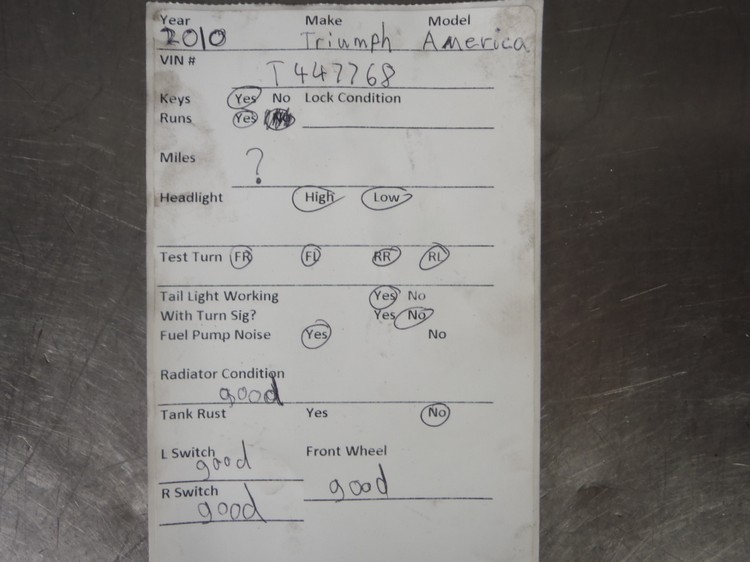 Year Make Model
2010 Triumph America
VIN #
T447768
Keys Yes No Lock Condition
Runs Yes
Miles ?
Headlight High Low
Test Turn FR FL RR RL
Tail Light Working Yes No
With Turn Sig? Yes No
Fuel Pump Noise Yes No
Radiator Condition
good
Tank Rust Yes No
L Switch Front Wheel
good
good
R Switch
good